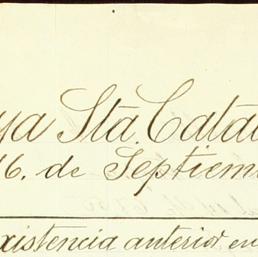 ya Sta. Catal
16. de Septiem
xistencia anterior en